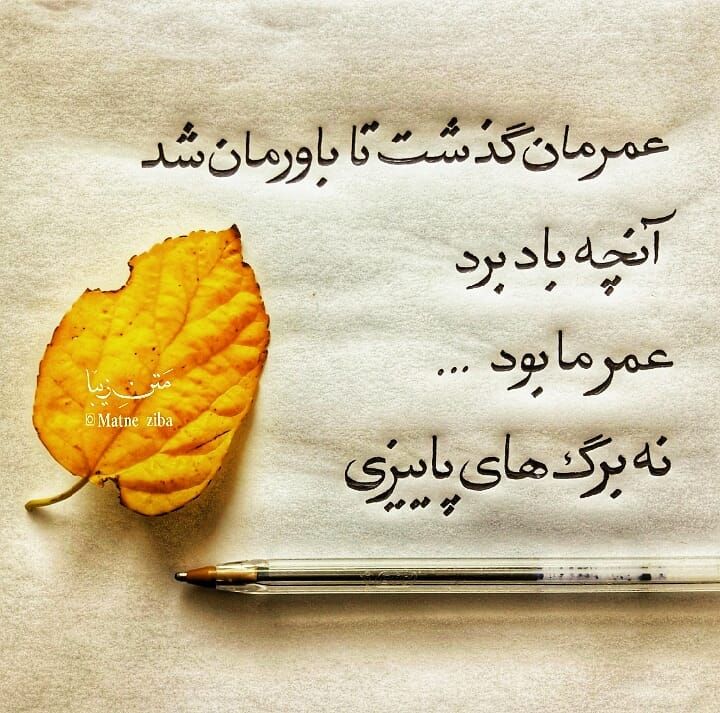 عمرمان گذشت تا باورمان شد
آنچه باد برد
عمر ما بود ...
نه برگ های پاییزی
متن زیبا
@Matne_ziba